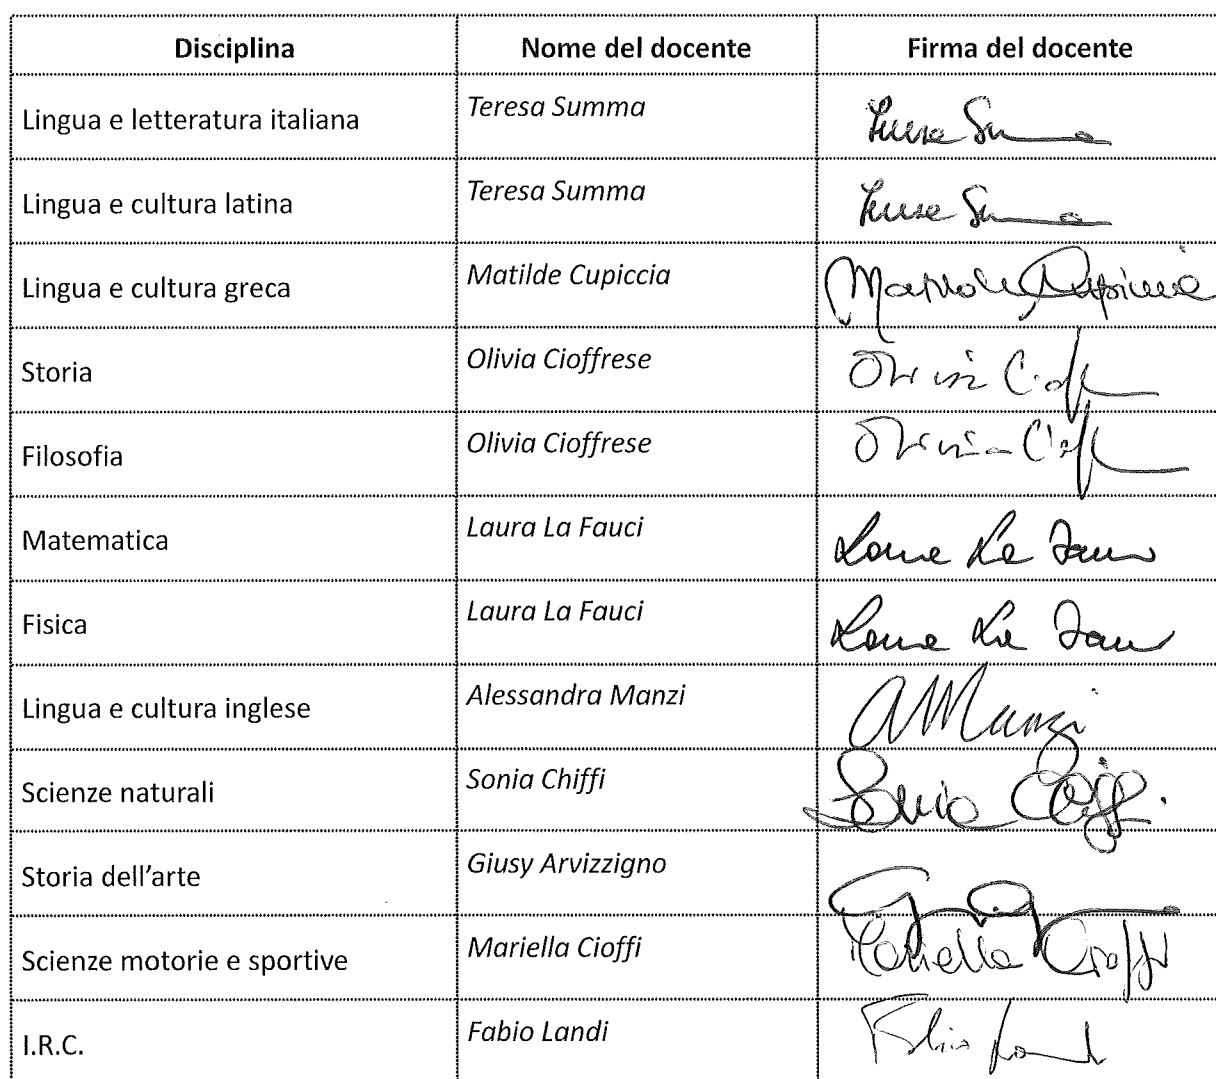 Disciplina Nome del docente Firma del docente
Lingua e letteratura italiana Teresa Summa Teresa Summa
Lingua e cultura latina Teresa Summa Teresa Summa
Lingua e cultura greca Matilde Cupiccia Matilde Cupiccia
Storia Olivia Cioffrese Olivia Cioff
Filosofia Olivia Cioffrese Olivia Cioff
Matematica Laura La Fauci Laura La Fauci
Fisica Laura La Fauci Laura La Fauci
Lingua e cultura inglese Alessandra Manzi AManzi
Scienze naturali Sonia Chiffi Sonia Chiffi
Storia dell'arte Giusy Arvizzigno
Scienze motorie e sportive Mariella Cioffi Mariella Cioffi
I.R.C. Fabio Landi Fabio Landi